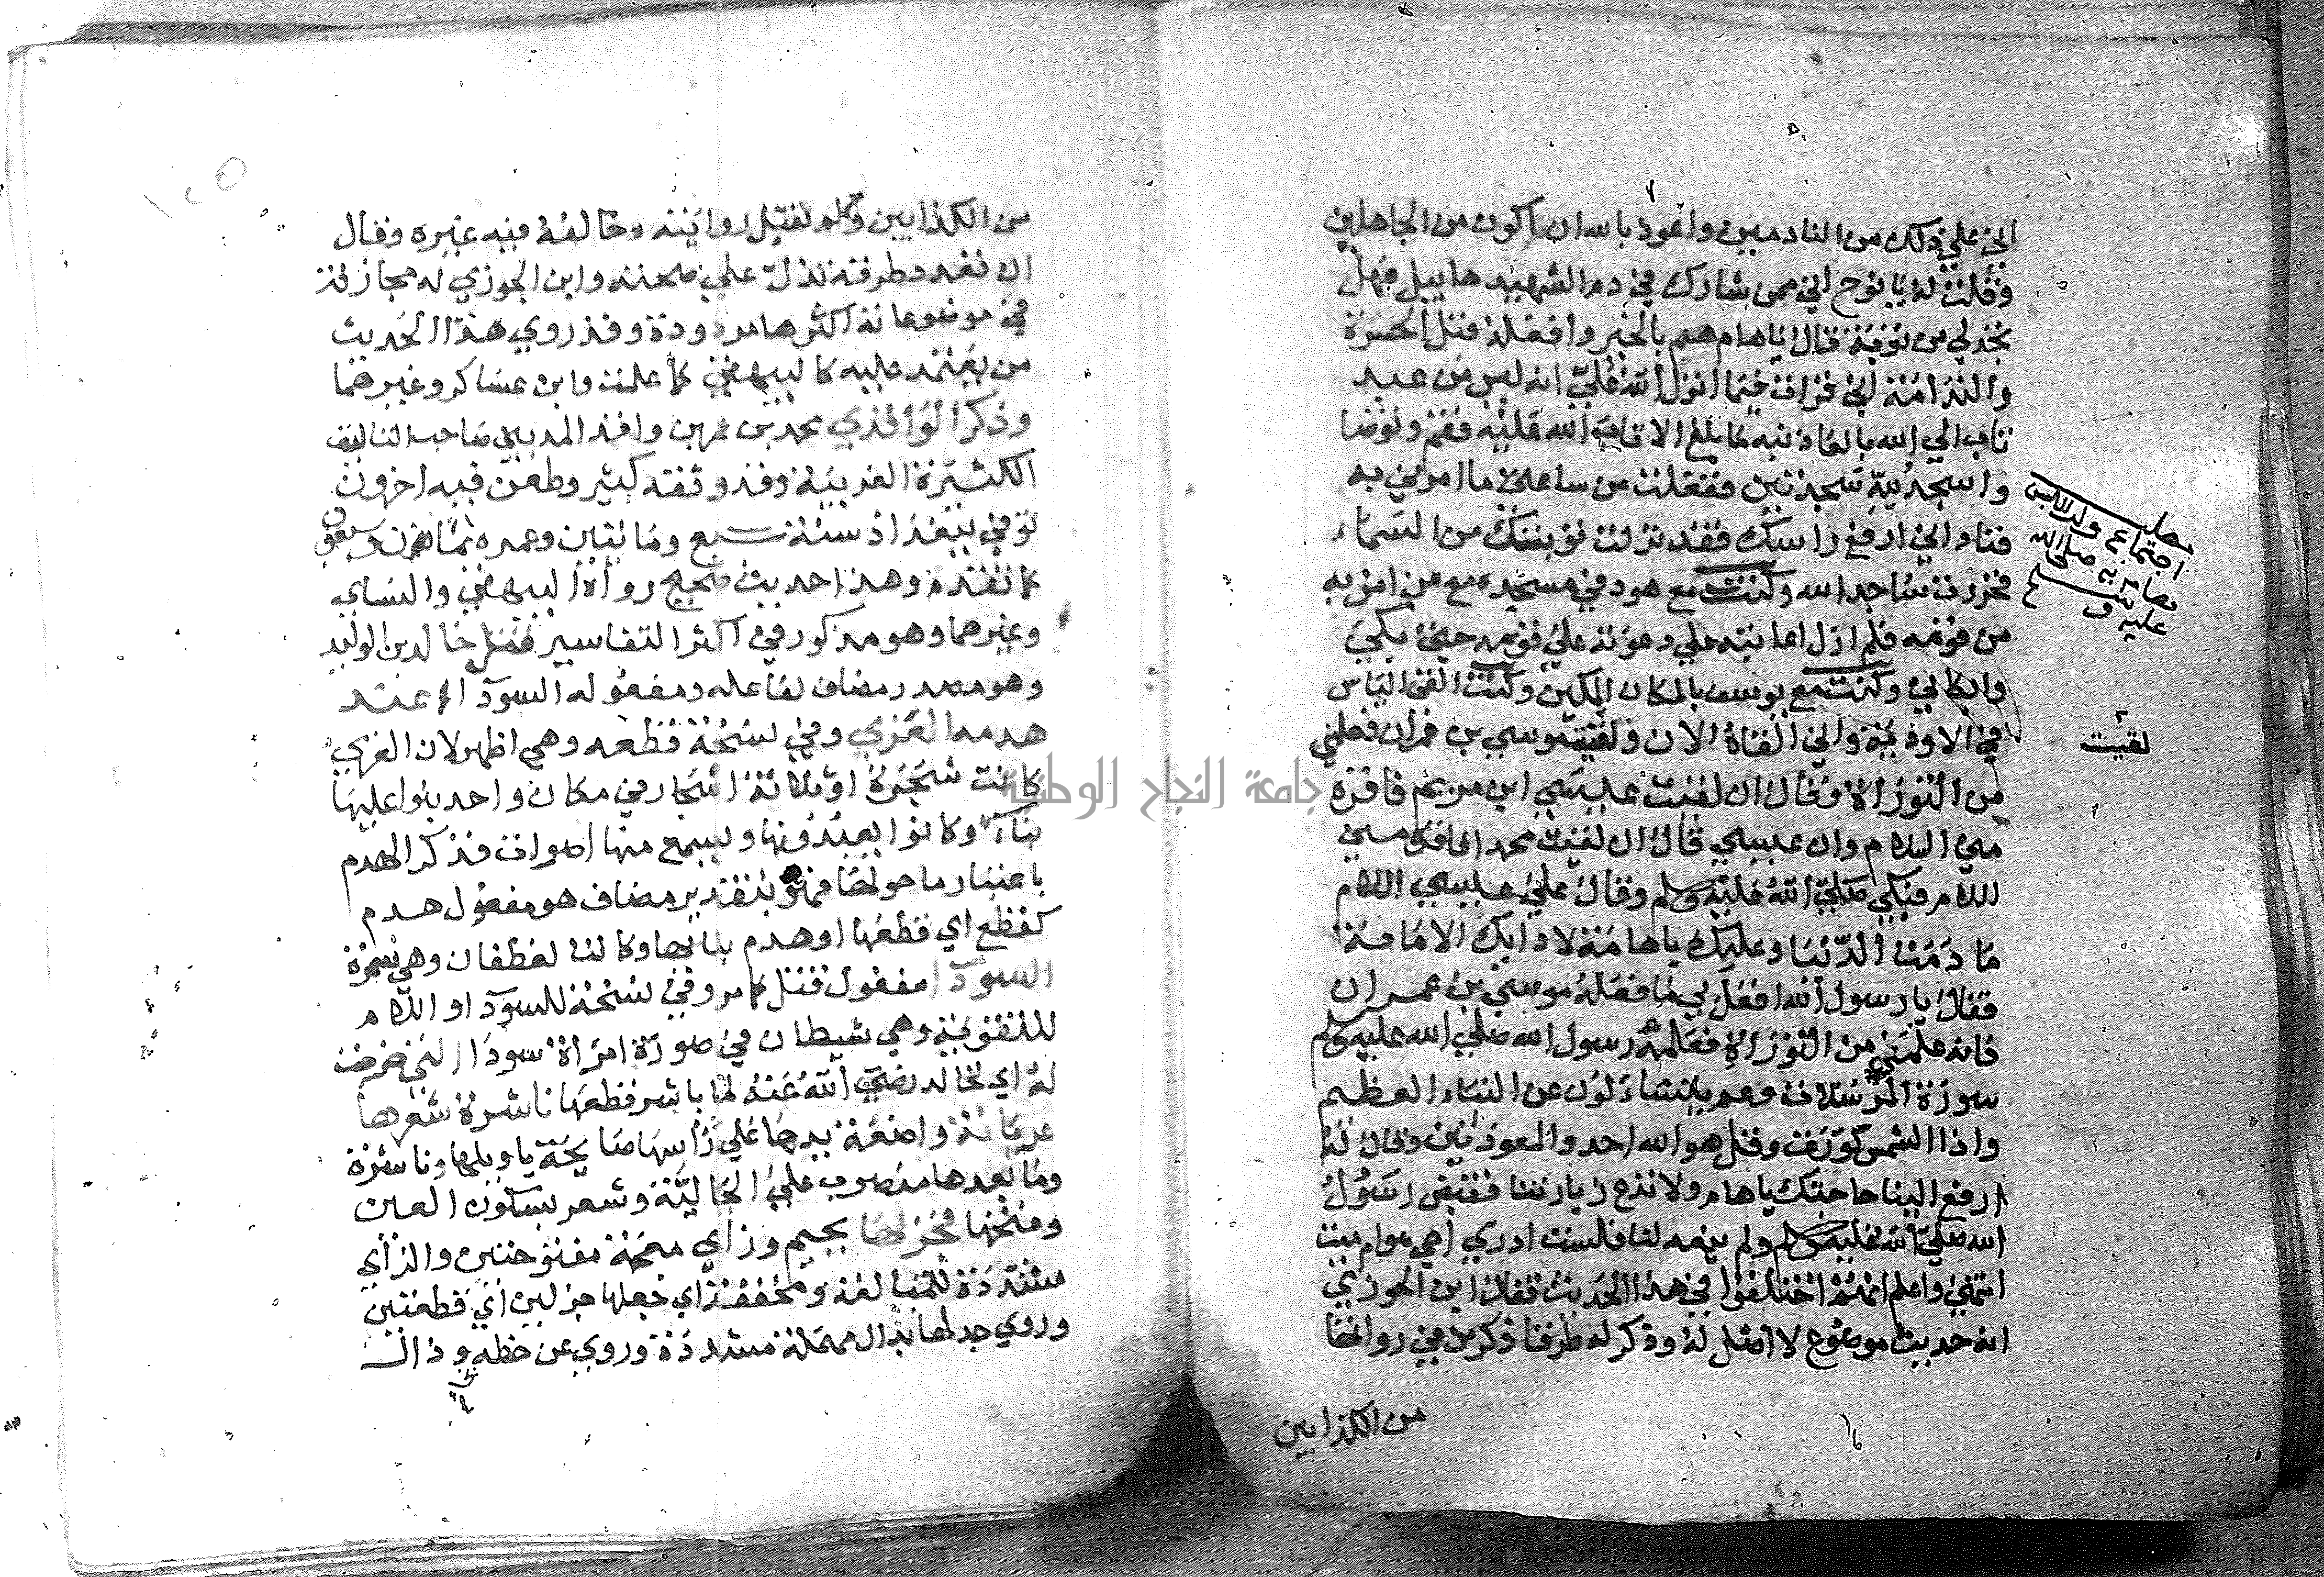 اني علي ذلك من النادمين واعوذ بالله ان اكون من الجاهلين
وقلت له يا نوح اني ممن شارك في دم الشهيد هابيل فهل
تجد لي من توبة قال يا هام هم بالخير وافعله قبل الحسرة
والندامة اني قرات فيما انزل الله علي انه ليس من عبد
تاب الي الله بالغا ذنبه ما بلغ الا تاب الله عليه فقم وتوضا
واسجد لله سجدتين ففعلت من ساعتي ما امرني به
فناداني ارفع راسك فقد نزلت توبتك من السماء
فخررت ساجدا لله وكنت مع هود في مسجده مع من امن به
من قومه فلم ازل اعاتبه علي دعوته علي قومه حتي بكي
وابكاني وكنت مع يوسف بالمكان المكين وكنت القي الياس
في الاودية واني القاه الان ولقيت موسي بن عمران فعلمني
من التوراة وقال ان لقيت عيسي ابن مريم فاقره
مني السلام وان عيسي قال ان لقيت محمدا فاقره مني
السلام فبكي صلي الله عليه وسلم وقال علي عيسي السلام
ما دامت الدنيا وعليك يا هامة لادايك الامانة
فقال يا رسول الله افعل بي ما فعله موسي بن عمران
فانه علمني من التوراة فعلمه رسول الله صلي الله عليه وسلم
سورة المرسلات وعم يتساءلون عن النباء العظيم
واذا الشمس كورت وقل هو الله احد والمعوذتين وقال له
ارفع الينا حاجتك يا هام ولا تدع زيارتنا فقبض رسول
الله صلي الله عليه وسلم ولم ينعه لنا فلست ادري احي هو ام ميت
انتهي واعلم انهم اختلفوا في هذا الحديث فقال ابن الجوزي
انه حديث موضوع لا اصل له وذكر له طرقا ذكر من في رواتها
من الكذابين
اجتماع
صلي الله
عليه وسلم
لقيت
١٢٥
من الكذابين ولم تقبل روايته وخالفه فيه غيره وقال
ان تعدد طرقه تدل علي صحته وابن الجوزي له مجازفة
في موضوعاته اكثرها مردودة وقد روي هذا الحديث
من يعتمد عليه كالبيهقي كما علمت وابن عساكر وغيرهما
وذكر الواقدي محمد بن عمر بن واقد المديني صاحب التاليف
الكثيرة الغريبة وقد وثقه كثير وطعن فيه اخرون
توفي ببغداد سنة سبع ومائتين وعمره ثمان وسبعون
كما تقدم وهذا حديث صحيح رواه البيهقي والنساي
وغيرهما وهو مذكور في اكثر التفاسير قتل خالد بن الوليد
وهو مصدر مضاف لفاعله ومفعوله السودا عند
هدمه العزي وفي نسخة قطعه وهي اظهر لان العزي
كانت شجرة او ثلاثة اشجار في مكان واحد بنوا عليها
بناء وكانوا يعبدونها ويسمع منها اصوات فذكر الهدم
باعتبار ما حولها فهو بتقدير مضاف هو مفعول هدم
كقطع اي قطعها او هدم بناءها وكانت لغطفان وهي سمرة
السودا مفعول قتل كما مر وفي نسخة للسودا واللام
للتقوية وهي شيطان في صورة امراة سودا التي خرجت
له اي لخالد رضي الله عنه لما باشر قطعها ناشرة شعرها
عريانة واضعة يدها علي راسها صايحة يا ويلها وناشرة
وما بعدها منصوب علي الحالية وشعر بسكون العين
وفتحها فجزلها بجيم وزاي معجمة مفتوحتين والزاي
مشددة للمبالغة ومخففة اي جعلها جزلين اي قطعتين
وروي جدلها بدال مهملة مشددة وروي عن خطه وذال
جامعة النجاح الوطنية